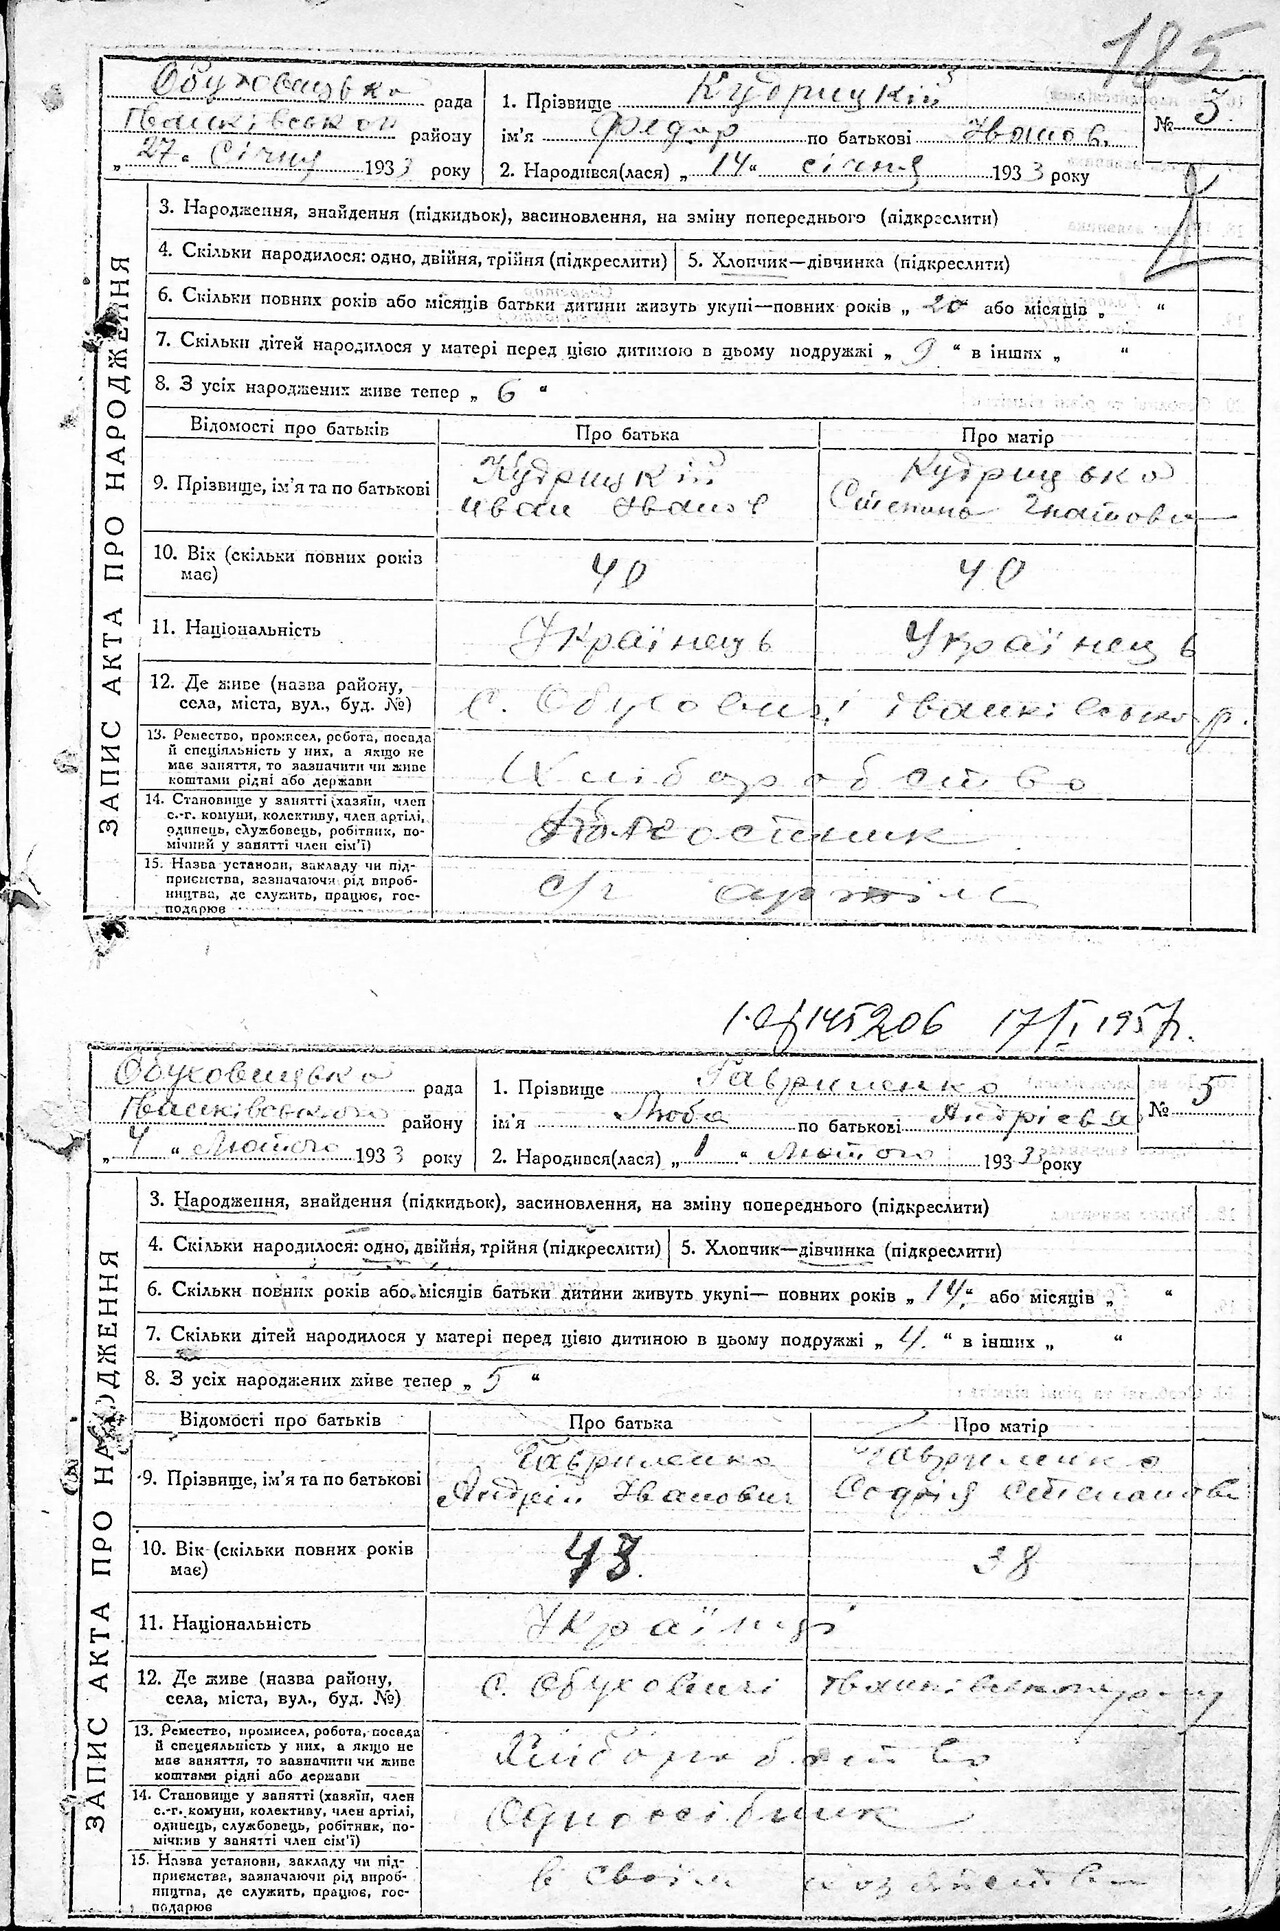 185
Обуховицька рада
Іванківської району
„27“ Січня 1933 року
1. Прізвище Кудрицкій
ім'я Федор по батькові Іванов.
2. Народився(лася) „14“ січня 1933 року
№ 3
ЗАПИС АКТА ПРО НАРОДЖЕННЯ
3. Народження, знайдення (підкидьок), васиновлення, на зміну попереднього (підкреслити)
4. Скільки народилося: одно, двійня, трійня (підкреслити) 5. Хлопчик—дівчинка (підкреслити)
6. Скільки повних років або місяців батьки дитини живуть укупі—повних років „ 20 або місяців „ “
7. Скільки дітей народилося у матері перед цією дитиною в цьому подружжі „ 9 “ в інших „ “
8. З усіх народжених живе тепер „ 6 “
Відомості про батьків Про батька Про матір
9. Прізвище, ім'я та по батькові
Кудрицкій
Иван Іванов
Кудрицька
Степана Гнатовна
10. Вік (скільки повних років
має) 40 40
11. Національність Українець Українець
12. Де живе (назва району,
села, міста, вул., буд. №) с. Обуховичі Іванківсько р.
13. Ремество, промисел, робота, посада
й спеціяльність у них, а якщо не
має заняття, то зазначити чи живе
коштами рідні або держави
Хліборобство
14. Становище у занятті (хазяїн, член
с.-г. комуни, колективу, член артілі,
одинець, службовець, робітник, по-
мічний у занятті член сім'ї)
Колгоспник
15. Назва установи, закладу чи під-
приємства, зазначаючи рід вироб-
ництва, де служить, працює, гос-
подарює
с/г артіль
145206 17/I 1957р.
Обуховицька рада
Іванківського району
„ 4 “ Лютого 1933 року
1. Прізвище Гавриленко
ім'я Люба по батькові Андрієвна
2. Народився(лася) „ 1 “ Лютого 1933 року
№ 5
ЗАПИС АКТА ПРО НАРОДЖЕННЯ
3. Народження, знайдення (підкидьок), засиновлення, на зміну попереднього (підкреслити)
4. Скільки народилося: одно, двійня, трійня (підкреслити) 5. Хлопчик—дівчинка (підкреслити)
6. Скільки повних років або місяців батьки дитини живуть укупі— повних років „ 14 “ або місяців „ “
7. Скільки дітей народилося у матері перед цією дитиною в цьому подружжі „ 4. “ в інших „ “
8. З усіх народжених живе тепер „ 5 “
Відомості про батьків Про батька Про матір
9. Прізвище, ім'я та по батькові
Гавриленко
Андрій Іванович
Гавриленко
Софія Степанов
10. Вік (скільки повних років
має) 43. 38
11. Національність Українці
12. Де живе (назва району,
села, міста, вул., буд. №) с. Обуховичі Іванківського р-ну
13. Ремество, промисел, робота, посада
й спецеяльність у них, а якщо не
має заняття, то зазначити чи живе
коштами рідні або держави
Хліборобство
14. Становище у занятті (хазяїн, член
с.-г. комуни, колективу, член артілі,
одинець, службовець, робітник, по-
мічнив у занятті член сім'ї)
Одноосібник
15. Назва установи, закладу чи під-
приємства, зазначаючи рід вироб-
ництва, де служить, працює, гос-
подарює
в своїм хозяйстві